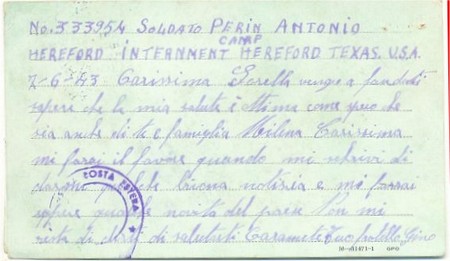 No. 333954 SOLDATO PERIN ANTONIO
CAMP
HEREFORD INTERNMENT HEREFORD TEXAS. U.S.A.
2-6-43 Carissima Sorella vengo a fandoti
saperi che la mia salute è ottima come spero che
sia anche di te e famiglia Milena Carissima
mi farai il favore quando mi schrivi di
qualche buona notizia e mi farrai
sapere qualche novità del paese Non mi
resta di di salutarti Caramente Tuo fratello Gino
POSTA ESTERA
16-31471-1 GPO